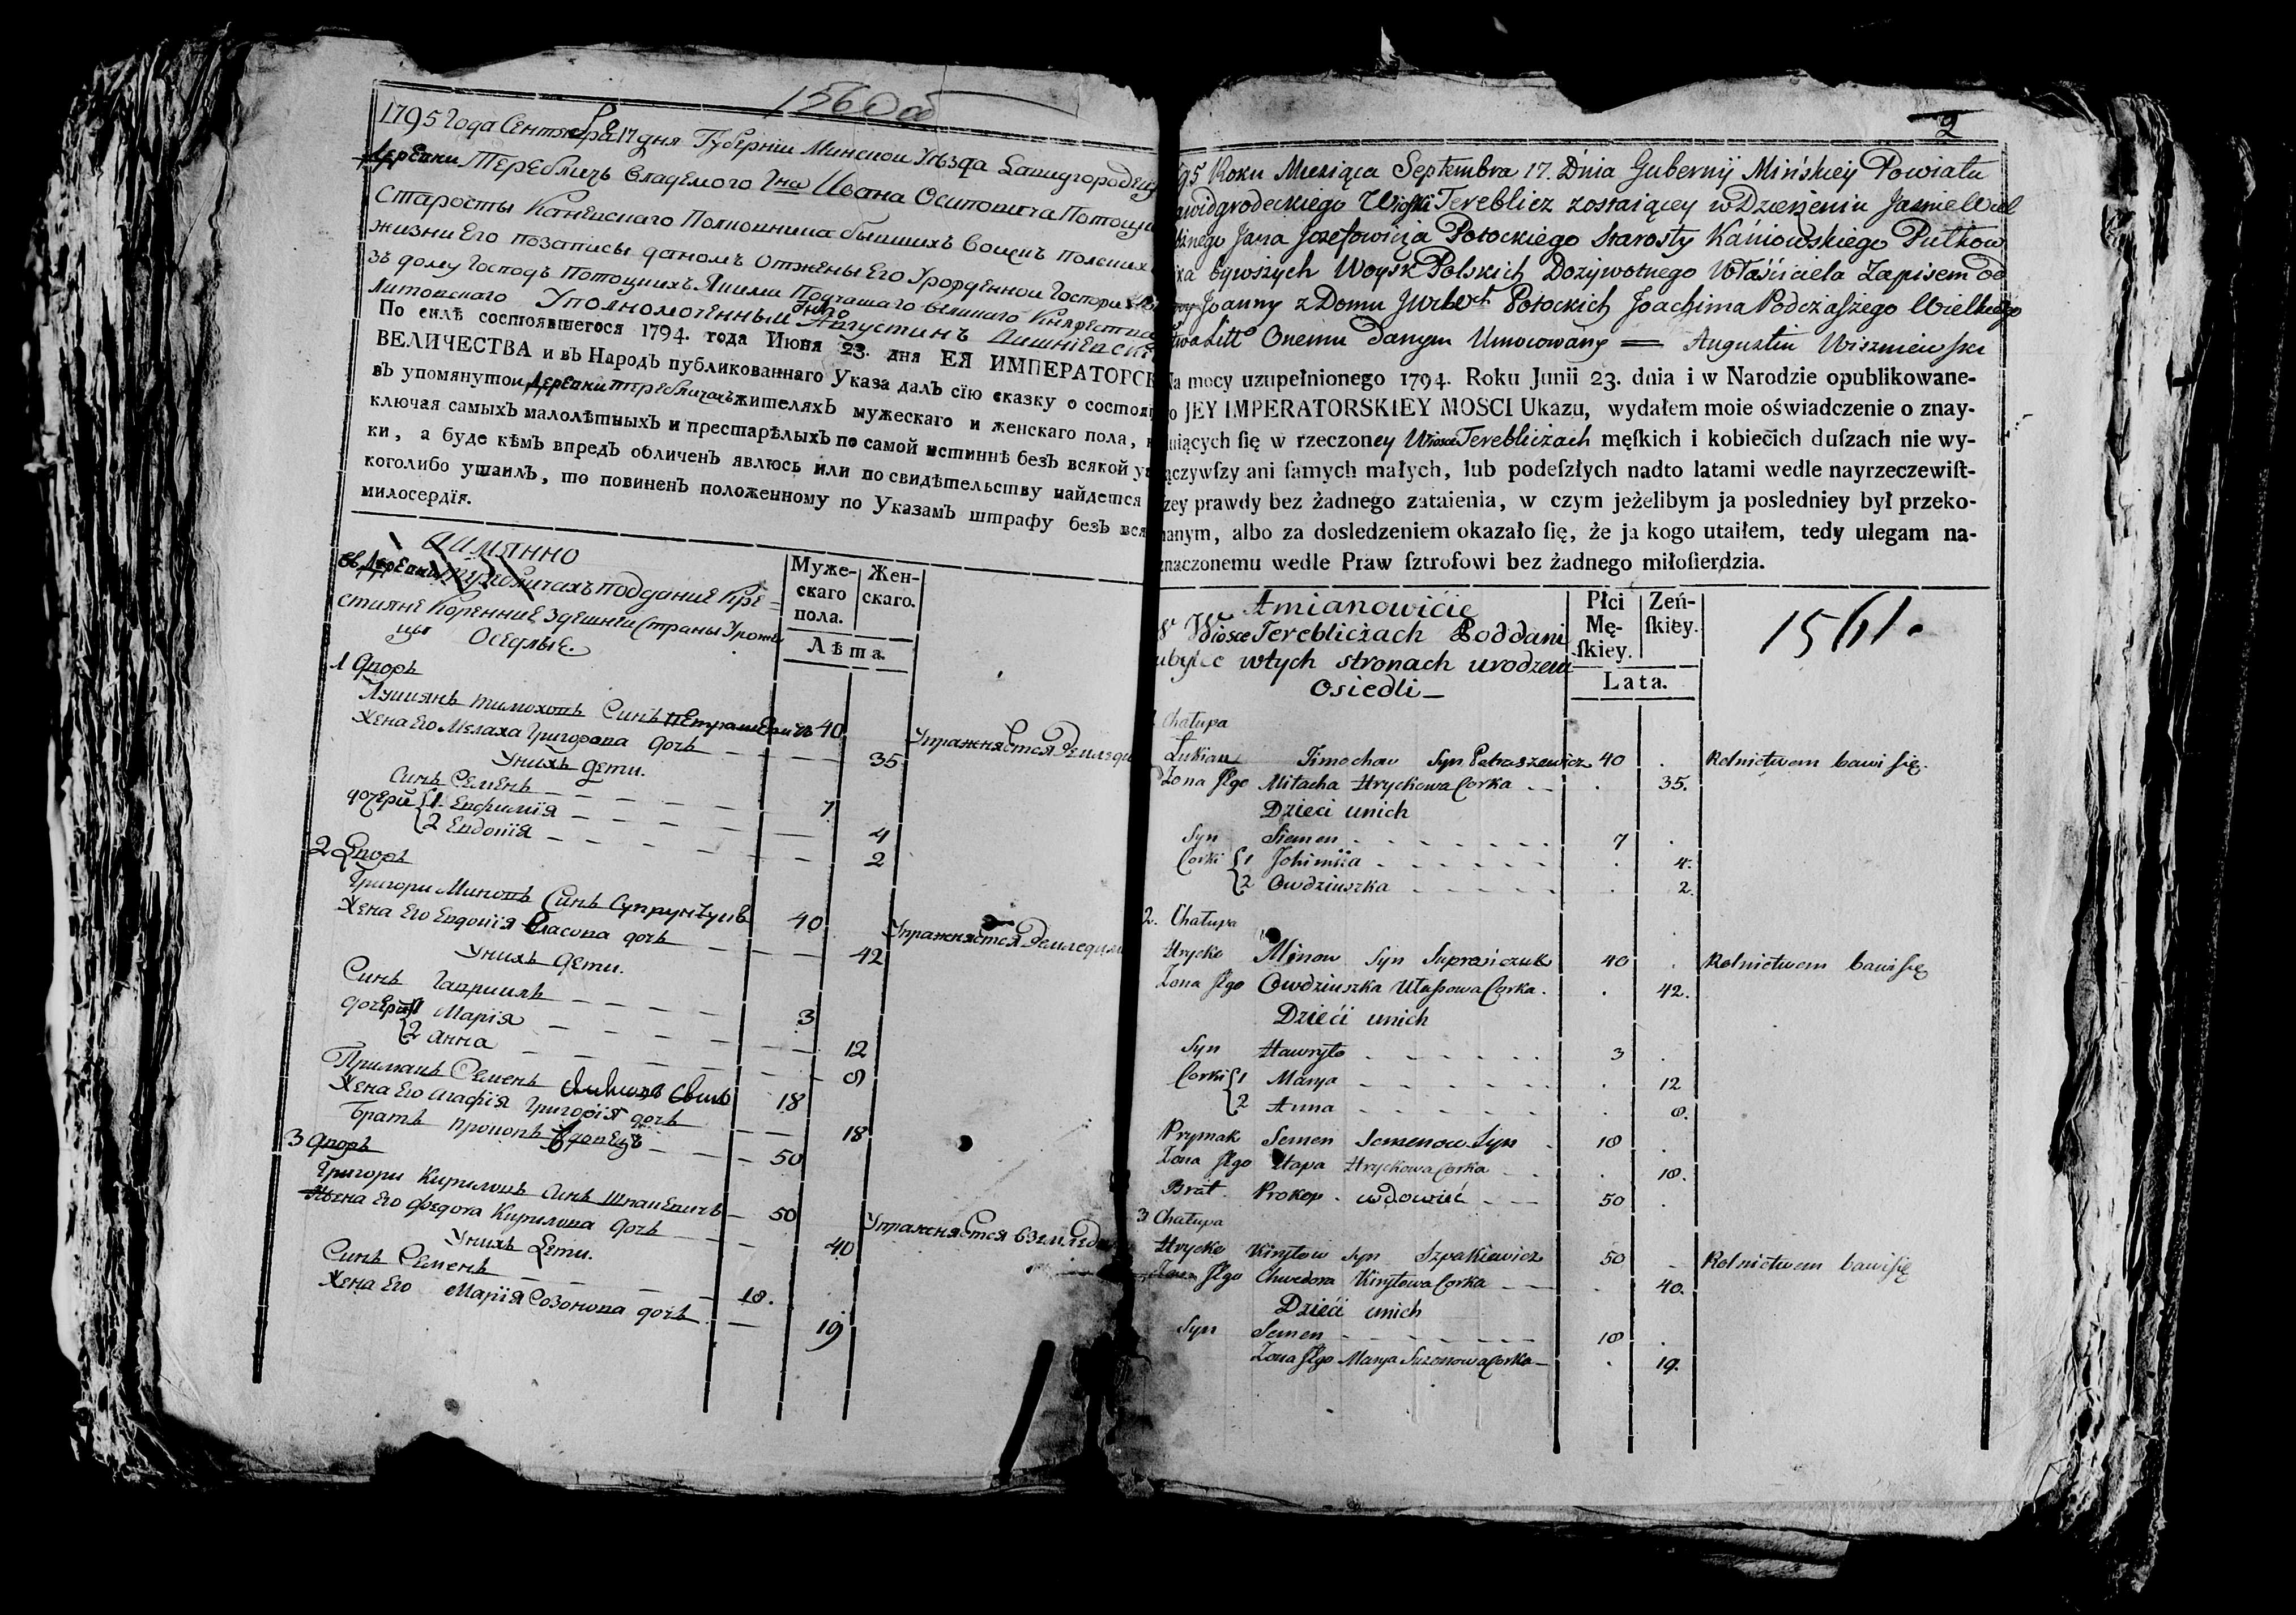 1560 об
1795 Года Сентября 17 дня Губернiи Минской Уѣзда
Деревни Теребличъ владемого Гна Ивана Осиповича
Старосты Каневскаго Полковника бывшихъ
жизни Его по записи данномъ от жены Его Урожденной
зъ дому Господъ Потоцкихъ Подчашаго великаго
Литовскаго Уполномоченный Августинъ
По силѣ состоявшегося 1794. года Июня 23. дня ЕЯ ИМПЕРАТОРСК
ВЕЛИЧЕСТВА и въ Народъ публикованнаго Указа далъ сїю сказку о состоя
въ упомянутой Деревни Теребличахъ жителяхъ мужескаго и женскаго пола,
ключая самыхъ малолѣтныхъ и престарѣлыхъ по самой истиннѣ безъ всякой у
ки, а буде кѣмъ впредъ обличенъ явлюсь или по свидѣтельству найдется
коголибо утаилъ, то повиненъ положенному по Указамъ штрафу безъ вся
милосердїя.
аимянно
въ Деревни Теребличахъ поддание Кре-
стияне Коренние здешнеи Страны Уроженцы
Оседлые.
Муже-
скаго
пола.
Жен-
скаго.
Лѣта.
1 Дворъ
Лукиянъ Тимоховъ Синъ Петрашевичъ 40
Жена Его Мелаха Григорова дочь 35
Унихъ Дети.
Синъ Семенъ 7
дочери 1. Евфимїя 4
2 Евдокїя 2
2 Дворъ
Григори Миновъ Синъ Супрунчукъ 40
Жена Его Евдокїя Власова дочь 42
Унихъ Дети.
Синъ Гавриилъ 3
дочери 1 Марїя 12
2 Анна 8
Примакъ Семенъ 18
Жена Его Агафїя Григорїя дочь 18
Братъ Прокопъ вдовецъ 50
3 Дворъ
Григори Кириловъ Синъ Шпакевичъ 50
Жена Его Федора Кирилова дочь 40
Унихъ Дети.
Синъ Семенъ 18.
Жена Его Марїя Созонова дочь 19
2
95 Roku Miesiąca Septembra 17. Dnia Gubernij Mińskiey Powiatu
awidgrodeckiego Wioski Tereblicz zostaiącey w Dzierżeniu Jaśnie Wiel
Jana Jozefowicza Potockiego Starosty Kaniowskiego Pułkow
bywszych Woysk Polskich Dożywotnego Właściciela Zapisem od
Joanny z Domu Potockich Joachima Podczaszego Wielkiego
Litto Onemu danym Umocowany = Augustin Wiszniewski
Na mocy uzupełnionego 1794. Roku Junii 23. dnia i w Narodzie opublikowane-
o JEY IMPERATORSKIEY MOSCI Ukazu, wydałem moie oświadczenie o znay-
uiących ſię w rzeczoney Wiosce Terebliczach męſkich i kobiecich duſzach nie wy-
ączywſzy ani ſamych małych, lub podeſzłych nadto latami wedle nayrzeczewiſt-
zey prawdy bez żadnego zataienia, w czym jeżelibym ja posledniey był przeko-
nanym, albo za dosledzeniem okazało ſię, że ja kogo utaiłem, tedy ulegam na-
znaczonemu wedle Praw ſztrofowi bez żadnego miłoſierdzia.
Amianowićie
w Wiosce Terebliczach Poddani
w tych stronach urodzeni
Osiedli
Płci
Mę-
ſkiey.
Zeń-
ſkiey.
Lata.
1561.
1. Chałupa
Łukian Timochow Syn Petraszewicz 40 Rolnictwem bawi się.
Zona Jego Miłacha Hryckowa Corka 35.
Dzieci unich
Syn Siemen 7
Corki 1 Johimiia 4.
2 Owdziuszka 2.
2. Chałupa
Hrycko Minow Syn Suprańczuk 40 Rolnictwem bawi się
Zona Jego Owdziuszka Własowa Corka. 42.
Dzieći unich
Syn Hawryło 3
Corki 1 Marya 12
2 Anna 8.
Prymak Semen Semenow Syn 18
Zona Jego Hapa Hryckowa Corka 18.
Brat. Prokop. wdowieć 50
3 Chałupa
Hrycko Kiryłow Syn Szpakiewicz 50 Rolnictwem bawi się
Zona Jego Chwedora Kiryłowa Corka 40.
Dzieći unich
Syn Semen 18
Zona Jego Marya Sazonowa Corka 19.